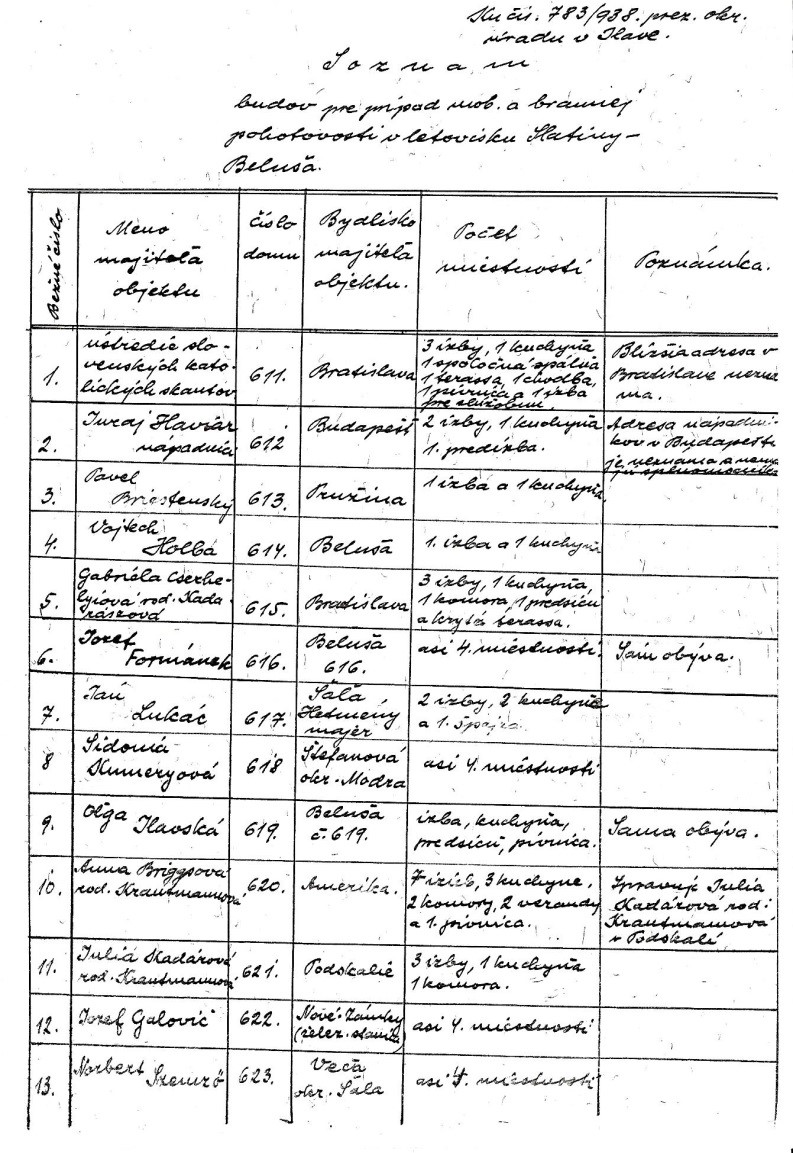 Ku čís. 783/938. prez. okr.
úradu v Ilave.
Soznam
budov pre prípad mob. a brannej
pohotovosti v letovisku Slatiny-
Beluša.
Bežné číslo
Meno
majiteľa
objektu
číslo
domu
Bydlisko
majiteľa
objektu.
Počet
miestností
Poznámka.
1.
ústredie slo-
venských kato-
líckých skautov
611.
Bratislava
3 izby, 1 kuchyňa
1 spoločná spálňa
1 terassa, 1 chodba,
1 pivnica a 1 izba
pre služobnú.
Bližšia adresa v
Bratislave nezná
ma.
2.
Juraj Haviár
nápadníci
612
Budapešť
2 izby, 1 kuchyňa
1. predizba.
Adresa nápadní-
kov v Budapešti
je neznáma a nema
jú splnomocníka
3.
Pavel
Briestenský
613.
Pružina
1 izba a 1 kuchyňa
4.
Vojtech
Holba
614.
Beluša
1. izba a 1 kuchyňa
5.
Gabriela Cserhe-
lyiová rod. Kada
rászová
615.
Bratislava
3 izby, 1 kuchyňa,
1 komora, 1 predsieň
a krytá terassa.
6.
Jozef
Formánek
616.
Beluša
616.
asi 4. miestností.
Sám obýva.
7.
Ján
Lukáč
617.
Šaľa
Hetmény
majer
2 izby, 2 kuchyňa
a 1. špajza
8
Sidonia
Kumeryová
618
Štefanová
okr. Modra
asi 4. miestností
9.
Oľga
Ilavská
619.
Beluša
č. 619.
izba, kuchyňa,
predsieň, pivnica.
Sama obýva.
10.
Anna Briggsová
rod. Krautmannová
620.
Amerika.
7 izieb, 3 kuchyne,
2 komory, 2 verandy
a 1. pivnica.
Spravuje Julia
Kadárová rod.
Krautmannová
v Podskalí
11.
Juliá Kadárová
rod. Krautmannová
621.
Podskalie
3 izby, 1 kuchyňa
1 komora.
12.
Jozef Galovič
622.
Nové-Zámky
(želez. stanica)
asi 4. miestností
13.
Norbert
Szemző
623.
Veča
okr. Šala
asi 4. miestností